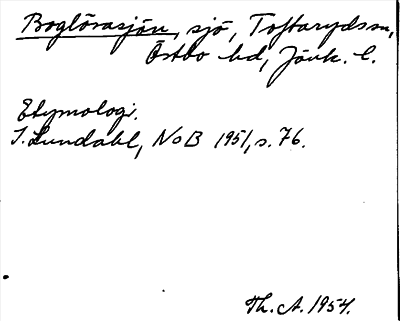 Boglösasjön, sjö, Toftarydssn,
Östbo hd, Jönk. l.
Etymologi.
I. Lundahl, NoB 1951, s. 76.
Th. A. 1954.